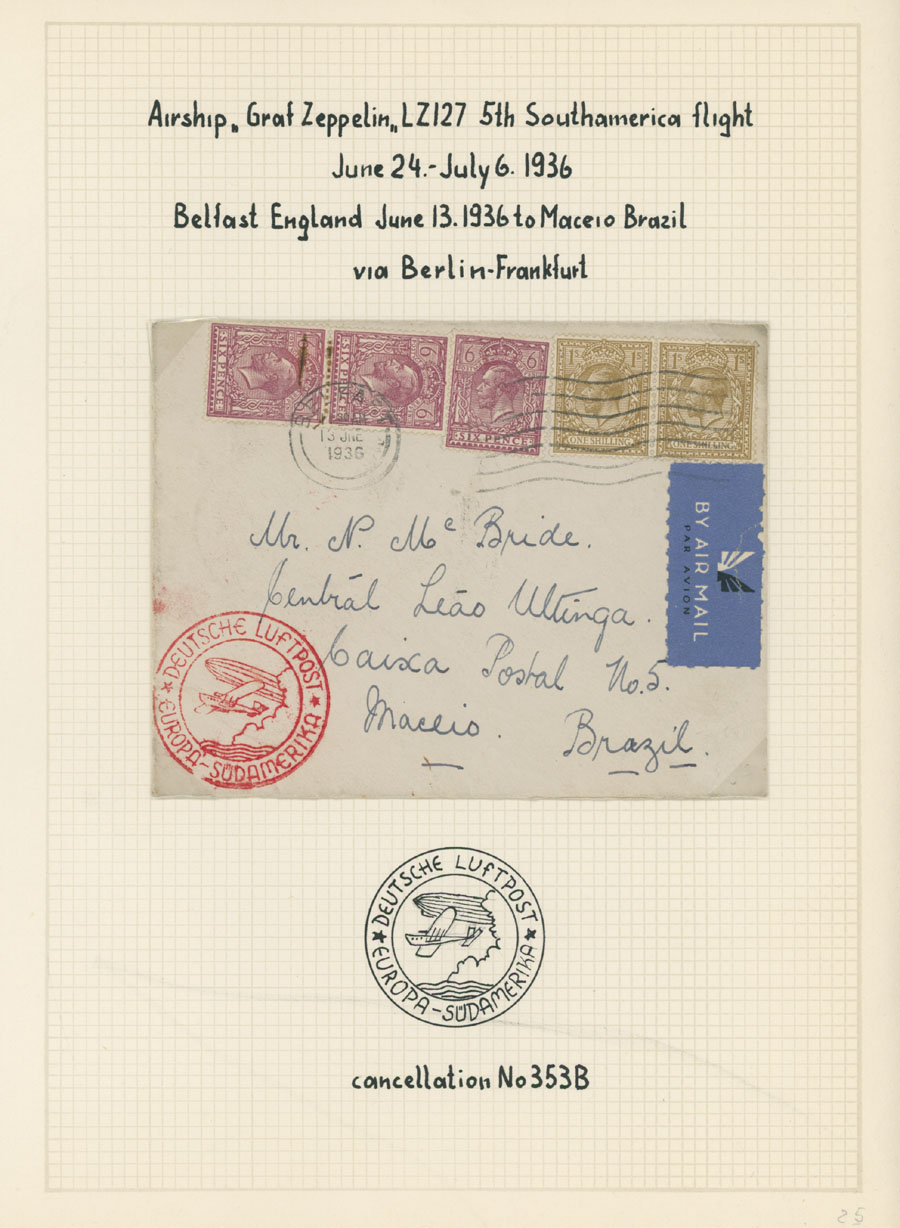 Airship „Graf Zeppelin„ LZ127 5th Southamerica flight
June 24.-July 6. 1936
Belfast England June 13.1936 to Maceio Brazil
via Berlin-Frankfurt
SIX PENCE
6
SIX PENCE
6
6
6 6
SIX PENCE
1S. 1S.
ONE SHILLING
1S. 1S.
ONE SHILLING
13 JNE
1936
BY AIR MAIL
PAR AVION
Mr. N. Mc Bride.
Centrál Leão Ultinga.
Caixa Postal No.5.
Maceio.
Brazil.
DEUTSCHE LUFTPOST
EUROPA-SÜDAMERIKA
DEUTSCHE LUFTPOST
EUROPA-SÜDAMERIKA
cancellation No 353B
25